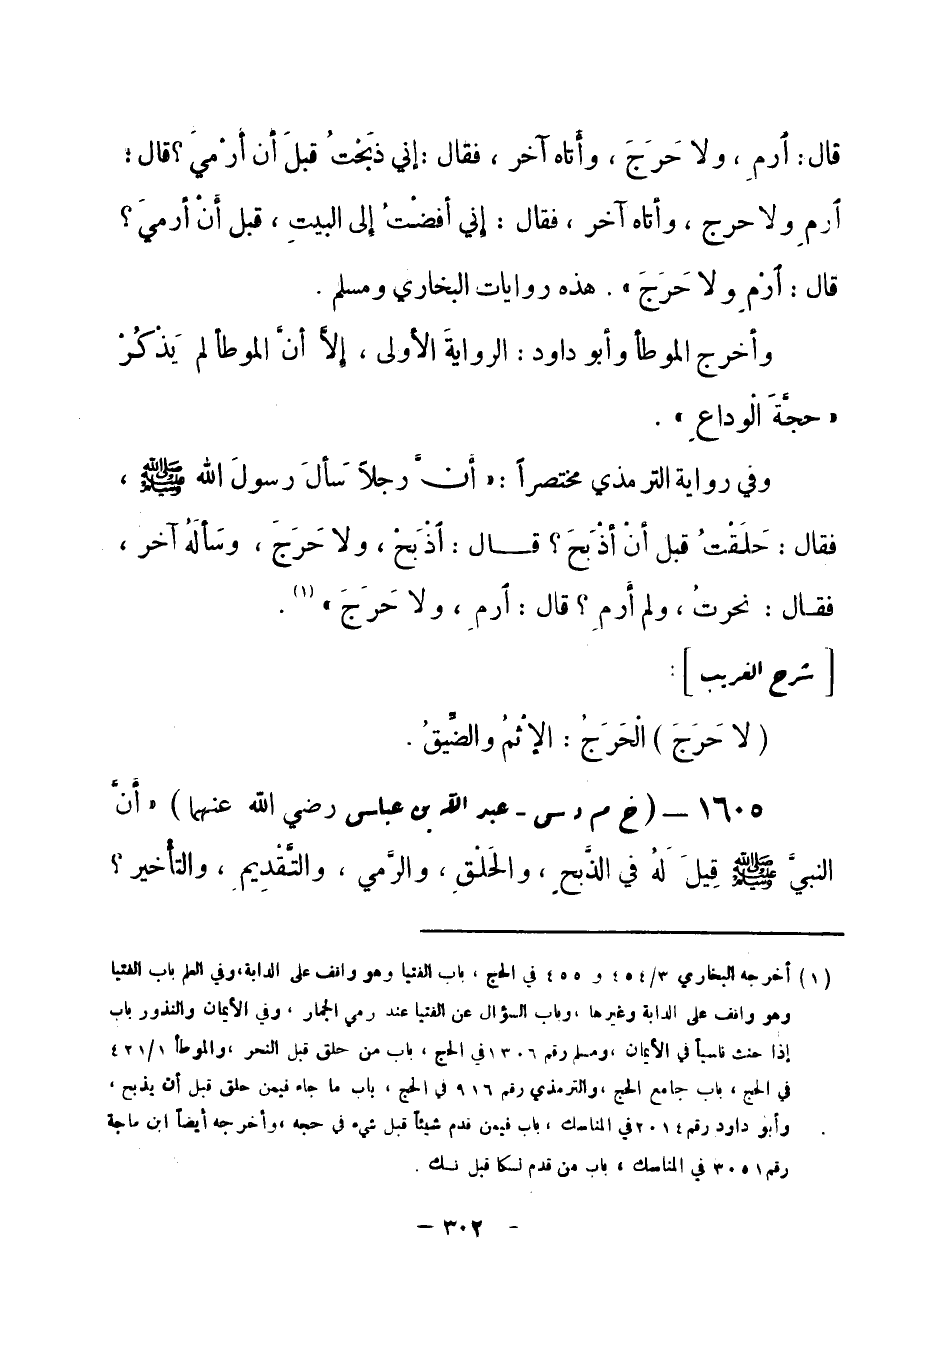 قال : ٱرمِ ، ولا حَرَجَ ، وأتاه آخر ، فقال : إني ذبَحْتُ قبلَ أن أرْميَ ؟ قال :
ٱرمِ ولا حرج ، وأتاه آخر ، فقال : إني أفضْتُ إلى البيتِ ، قبل أنْ أرميَ ؟
قال : ٱرْمِ ولا حَرَجَ » . هذه روايات البخاري ومسلم .
وأخرج الموطأ وأبو داود : الروايةَ الأولى ، إلاَّ أنَّ الموطأ لم يَذْكُرْ
« حجَّةَ الْوداعِ » .
وفي رواية الترمذي مختصراً : « أنَّ رجلاً سَألَ رسولَ الله ﷺ ،
فقال : حَلَقْتُ قبل أنْ أذْبَحَ ؟ قال : ٱذْبَحْ ، ولا حَرَجَ ، وسَألَهُ آخر ،
فقال : نحرتُ ، ولم أرمِ ؟ قال : ٱرمِ ، ولا حَرَجَ » (١) .
[ شرح الغريب ] :
( لا حَرَجَ ) الْحَرَجُ : الإثْمُ والضِّيقُ .
١٦٠٥ — ( خ م د س - عبد الله بن عباس رضي الله عنهما ) « أنَّ
النبيَّ ﷺ قِيلَ لَهُ في الذَّبحِ ، والحَلْقِ ، والرَّمي ، والتَّقْدِيمِ ، والتأخير ؟
(١) أخرجه البخاري ٤٥٤/٣ و ٤٥٥ في الحج ، باب الفتيا وهو واقف على الدابة ، وفي العلم باب الفتيا
وهو واقف على الدابة وغيرها ، وباب السؤال عن الفتيا عند رمي الجمار ، وفي الأيمان والنذور باب
إذا حنث ناسياً في الأيمان ، ومسلم رقم ١٣٠٦ في الحج ، باب من حلق قبل النحر ، والموطأ ٤٢١/١
في الحج ، باب جامع الحج ، والترمذي رقم ٩١٦ في الحج ، باب ما جاء فيمن حلق قبل أن يذبح ،
وأبو داود رقم ٢٠١٤ في المناسك ، باب فيمن قدم شيئاً قبل شيء في حجه ، وأخرجه أيضاً ابن ماجة
رقم ٣٠٥١ في المناسك ، باب من قدم نسكا قبل نسك .
- ٣٠٢ —